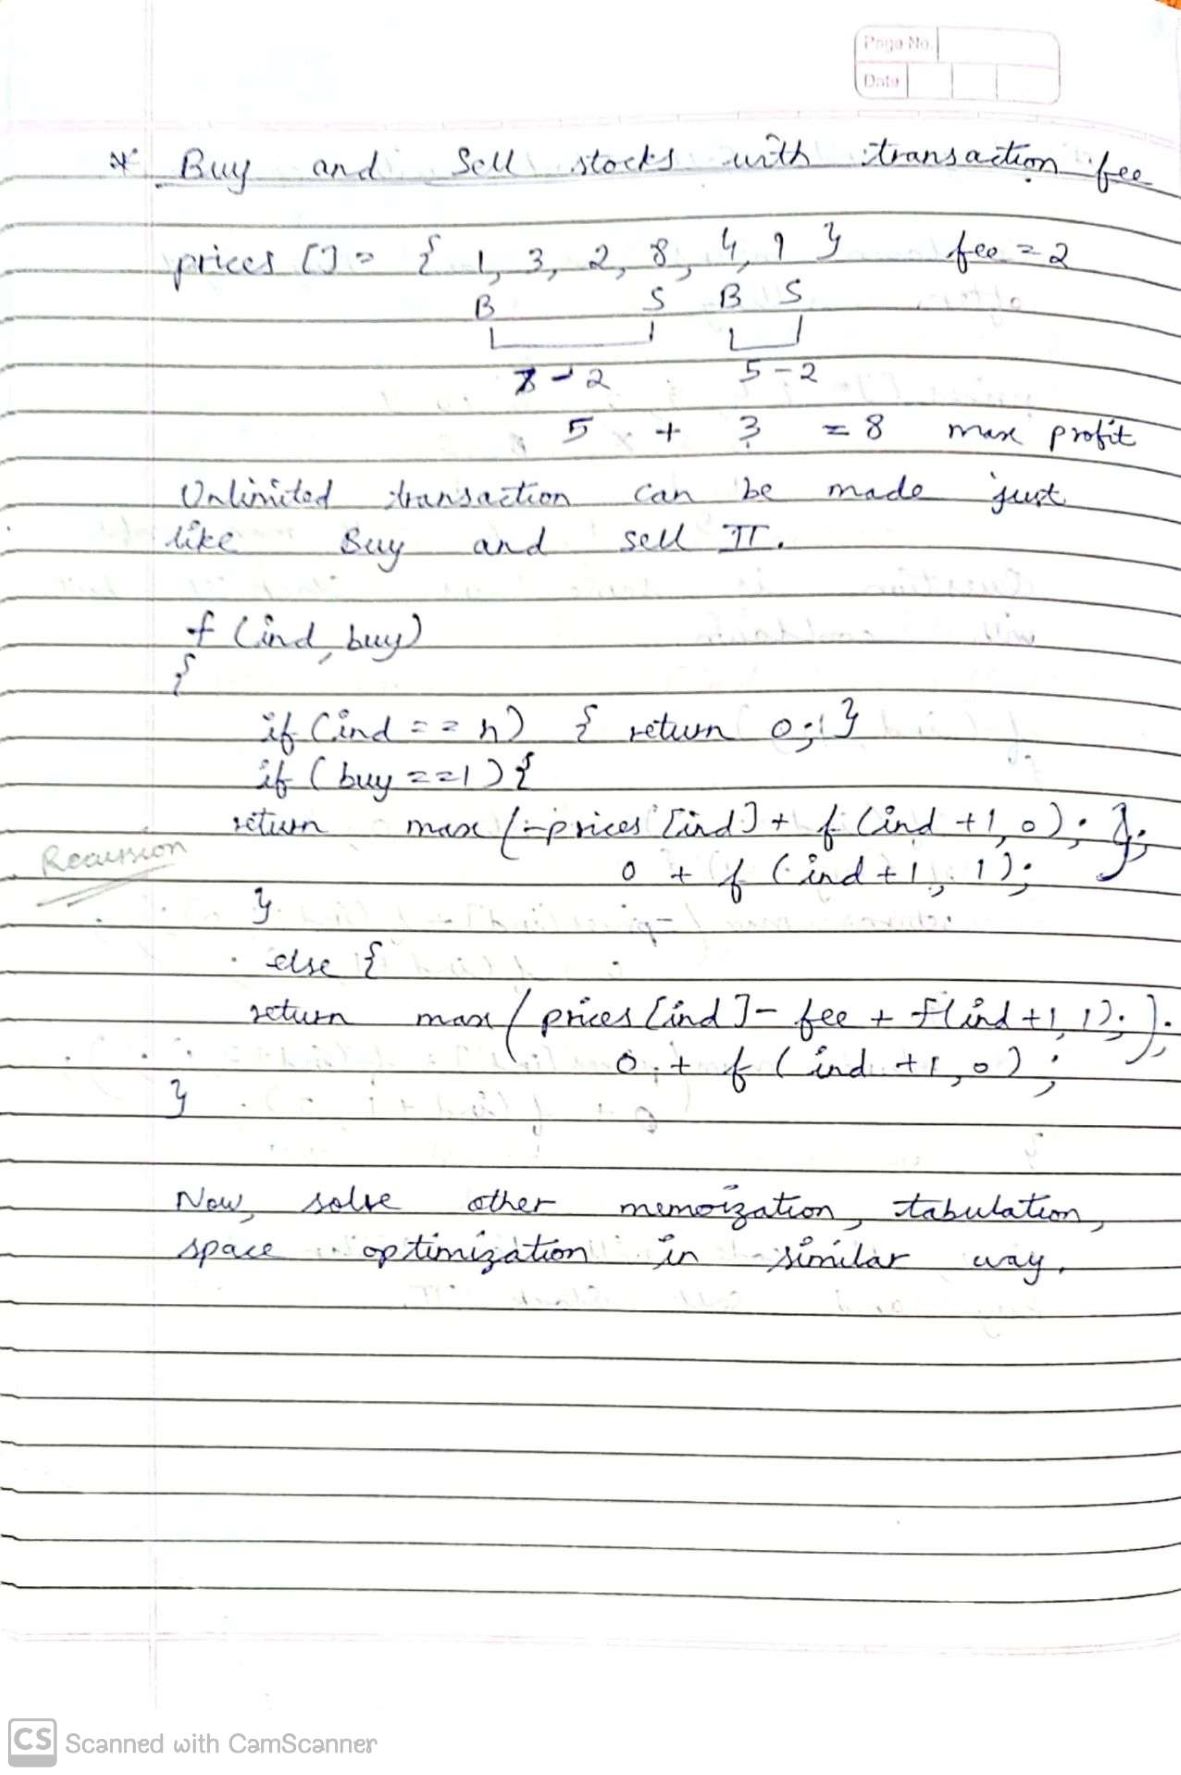 Page No.
Date
* Buy and Sell stocks with transaction fee
prices [] = { 1, 3, 2, 8, 4, 9 } fee = 2
B S B S
7 - 2 5 - 2
5 + 3 = 8 max profit
Unlimited transaction can be made just
like Buy and sell II.
f (ind, buy)
{
if (ind == n) { return 0; }
if (buy == 1) {
return max (-prices [ind] + f (ind +1, 0); );
Recursion
0 + f (ind +1, 1);
}
else {
return max ( prices [ind] - fee + f(ind +1, 1); );
0 + f (ind +1, 0) ;
}
Now, solve other memoization, tabulation,
space optimization in similar way.
CS Scanned with CamScanner